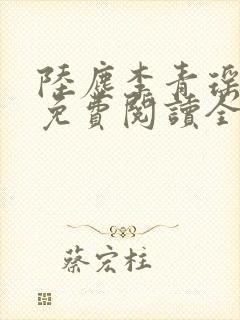 陸塵李青瑶
免費閱讀全
蔡宏柱